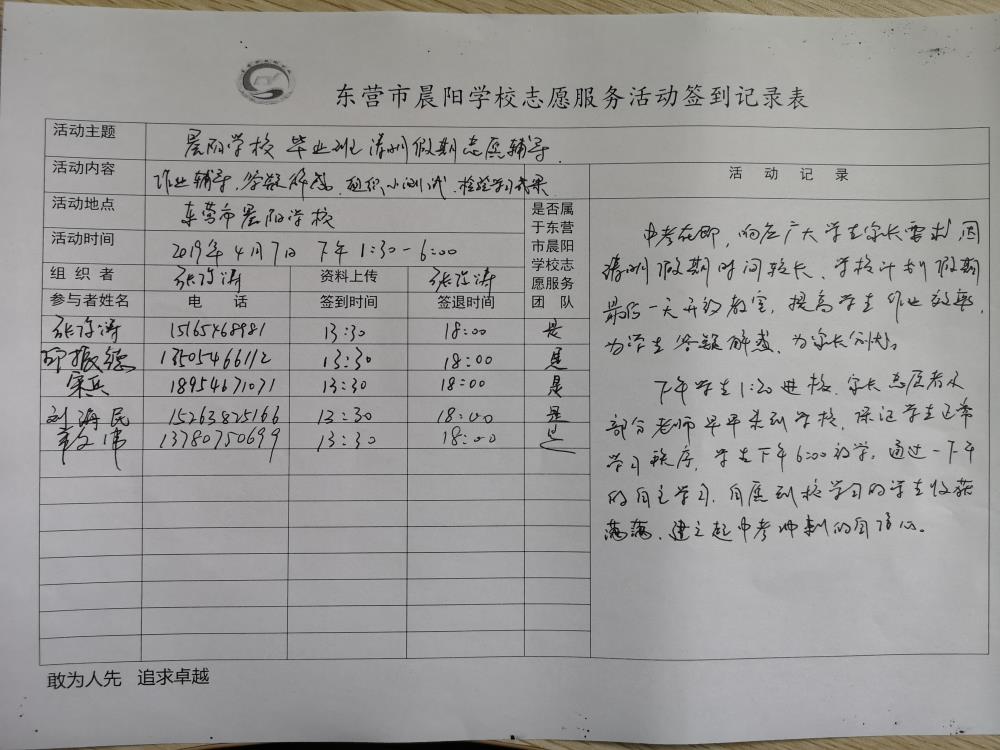 东营市晨阳学校志愿服务活动签到记录表
活动主题 晨阳学校毕业班清明假期志愿辅导
活动内容 作业辅导、答疑解惑、组织小测试、检验学习成果
活动地点 东营市晨阳学校
活动时间 2019年4月7日 下午1:30-6:00
组织者 资料上传
参与者姓名 电话 签到时间 签退时间
是否属
于东营
市晨阳
学校志
愿服务
团队
15165468981 13:30 18:00 是
13505466112 13:30 18:00 是
宋兵 18954671071 13:30 18:00 是
刘海民 15263825166 13:30 18:00 是
13780750699 13:30 18:00 是
活动记录
中考在即,响应广大学生家长需求,因
清明假期时间较长,学校计划假期
最后一天开放教室,提高学生作业效率,
为学生答疑解惑,为家长分忧。
下午学生1:30进校,家长志愿者及
部分老师早早来到学校,保证学生正常
学习秩序,学生下午6:00放学。通过一下午
的自主学习,自愿到校学习的学生收获
满满,建立起中考冲刺的自信心。
敢为人先 追求卓越